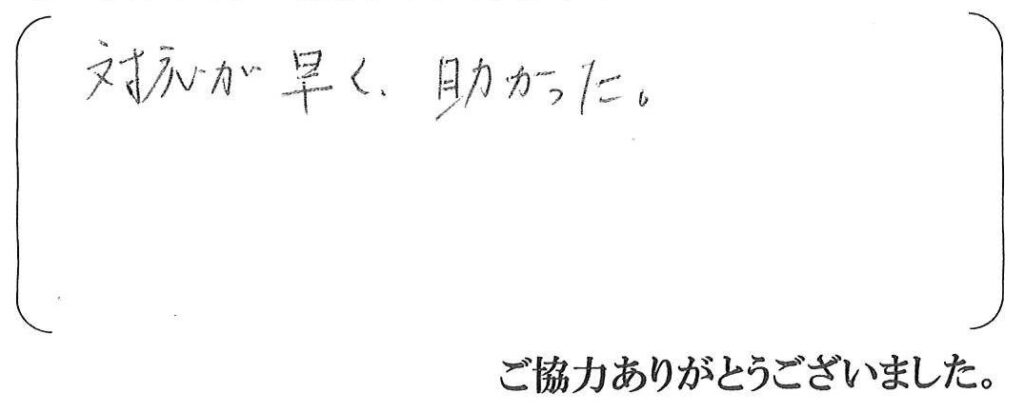 対応が早く、助かった。
ご協力ありがとうございました。